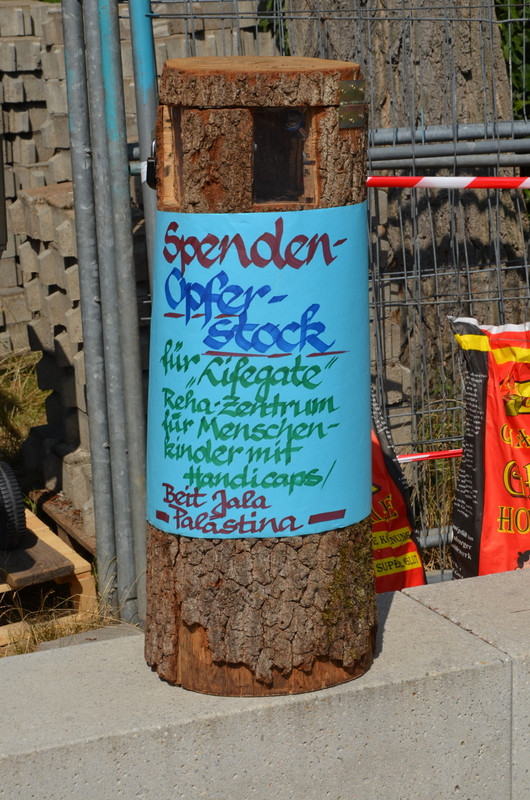 Spenden-
Opfer-
stock
für "Lifegate"
Reha-Zentrum
für Menschen-
kinder mit
Handicaps/
Beit Jala
- Palästina -